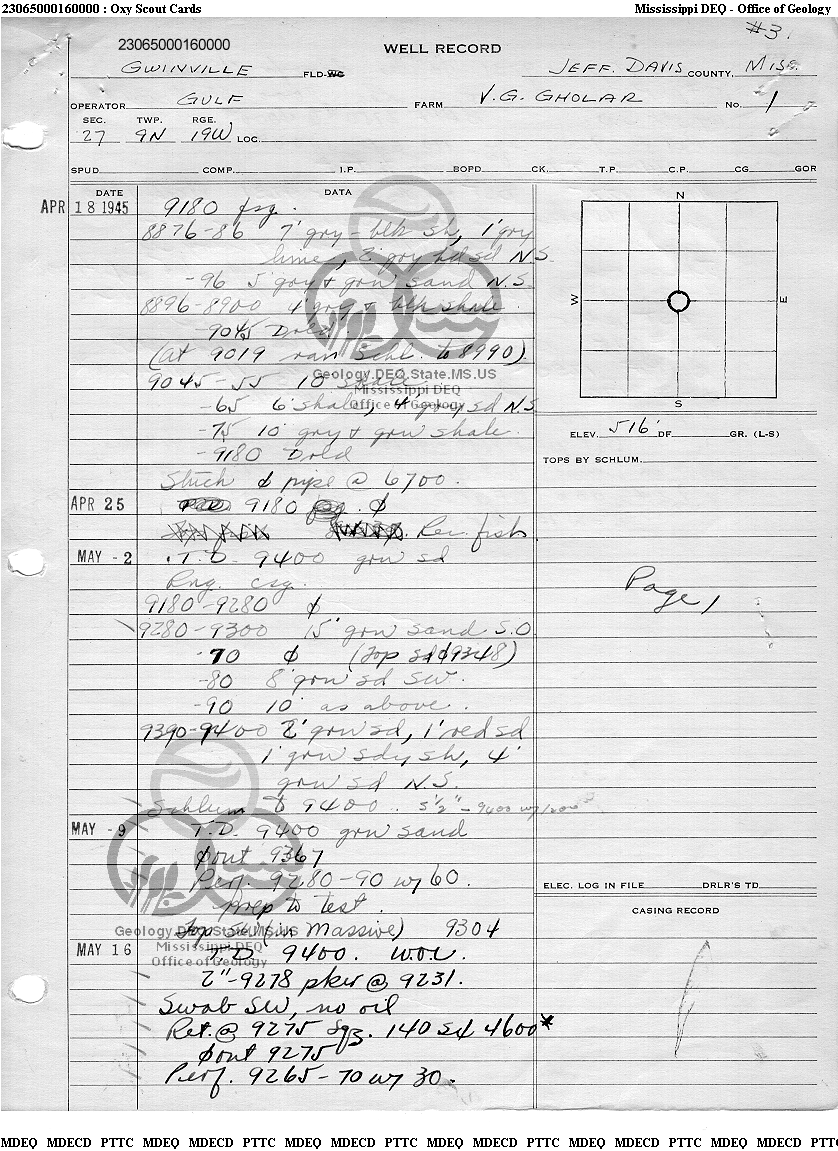 23065000160000 : Oxy Scout Cards Mississippi DEQ - Office of Geology
#3.
23065000160000
WELL RECORD
GWINVILLE FLD-WC JEFF. DAVIS COUNTY, MISS.
OPERATOR GULF FARM V.G. GHOLAR NO. 1
SEC. TWP. RGE.
27 9N 19W LOC.
SPUD COMP. I.P. BOPD CK. T.P. C.P. CG GOR
DATE DATA
APR 18 1945 9180 fsg.
8876-86 7' gry-blk sh, 1' gry
lime, 2' gry hd sd N.S
-96 5' gry & grn sand N.S.
8896-8900 4' gry & blk shale
-9045 Drld
(at 9019 ran Schl. to 8990)
Geology.DEQ.State.MS.US
Mississippi DEQ
Office of Geology
9045-55 10' shale
-65 6' shale, 4' gry sd N.S
-75 10' gry & grn shale
-9180 Drld
Stuck ϕ pipe @ 6700.
APR 25 9180 ϕ
Rec. fish.
MAY -2 T.D. 9400 grn sd
Rng. csg.
9180-9280 ϕ
9280-9300 15' grn sand S.O
-70 ϕ (Top sd ϕ 9348)
-80 8' grn sd SW.
-90 10' as above.
9390-9400 2' grn sd, 1' red sd
1' grn sdy sh, 4'
grn sd N.S.
Schlum to 9400. 5 1/2" - 9400 w/
MAY -9 T.D. 9400 grn sand
ϕout 9367
Perf. 9280-90 w/ 60.
Prep to test.
Top (in Massive) 9304
Geology.DEQ.State.MS.US
Mississippi DEQ
Office of Geology
MAY 16 T.D. 9400. W.O.C.
2"-9278 pkr @ 9231.
Swab SW, no oil
Ret. @ 9275 Sqz. 140 sx 4600#
ϕout 9275
Perf. 9265-70 w/ 30.
N
W E
S
ELEV. 516' DF GR. (L-S)
TOPS BY SCHLUM.
Page 1
ELEC. LOG IN FILE DRLR'S TD
CASING RECORD
MDEQ MDECD PTTC MDEQ MDECD PTTC MDEQ MDECD PTTC MDEQ MDECD PTTC MDEQ MDECD PTTC MDEQ MDECD PTTC